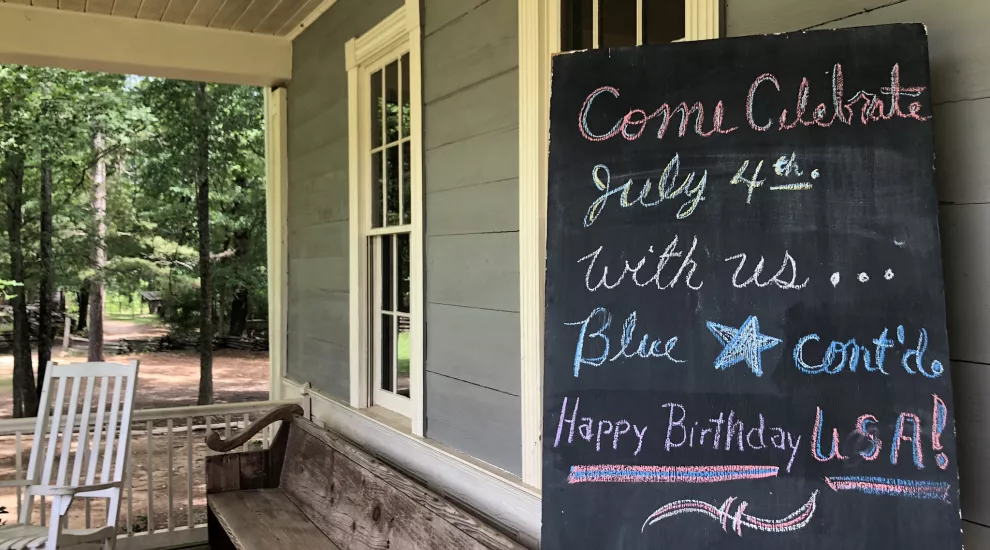 Come Celebrate
July 4th.
with us...
Blue cont'd.
Happy Birthday USA!